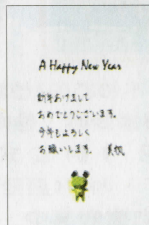 A Happy New Year
新年あけまして
おめでとうございます。
今年もよろしく
お願いします。